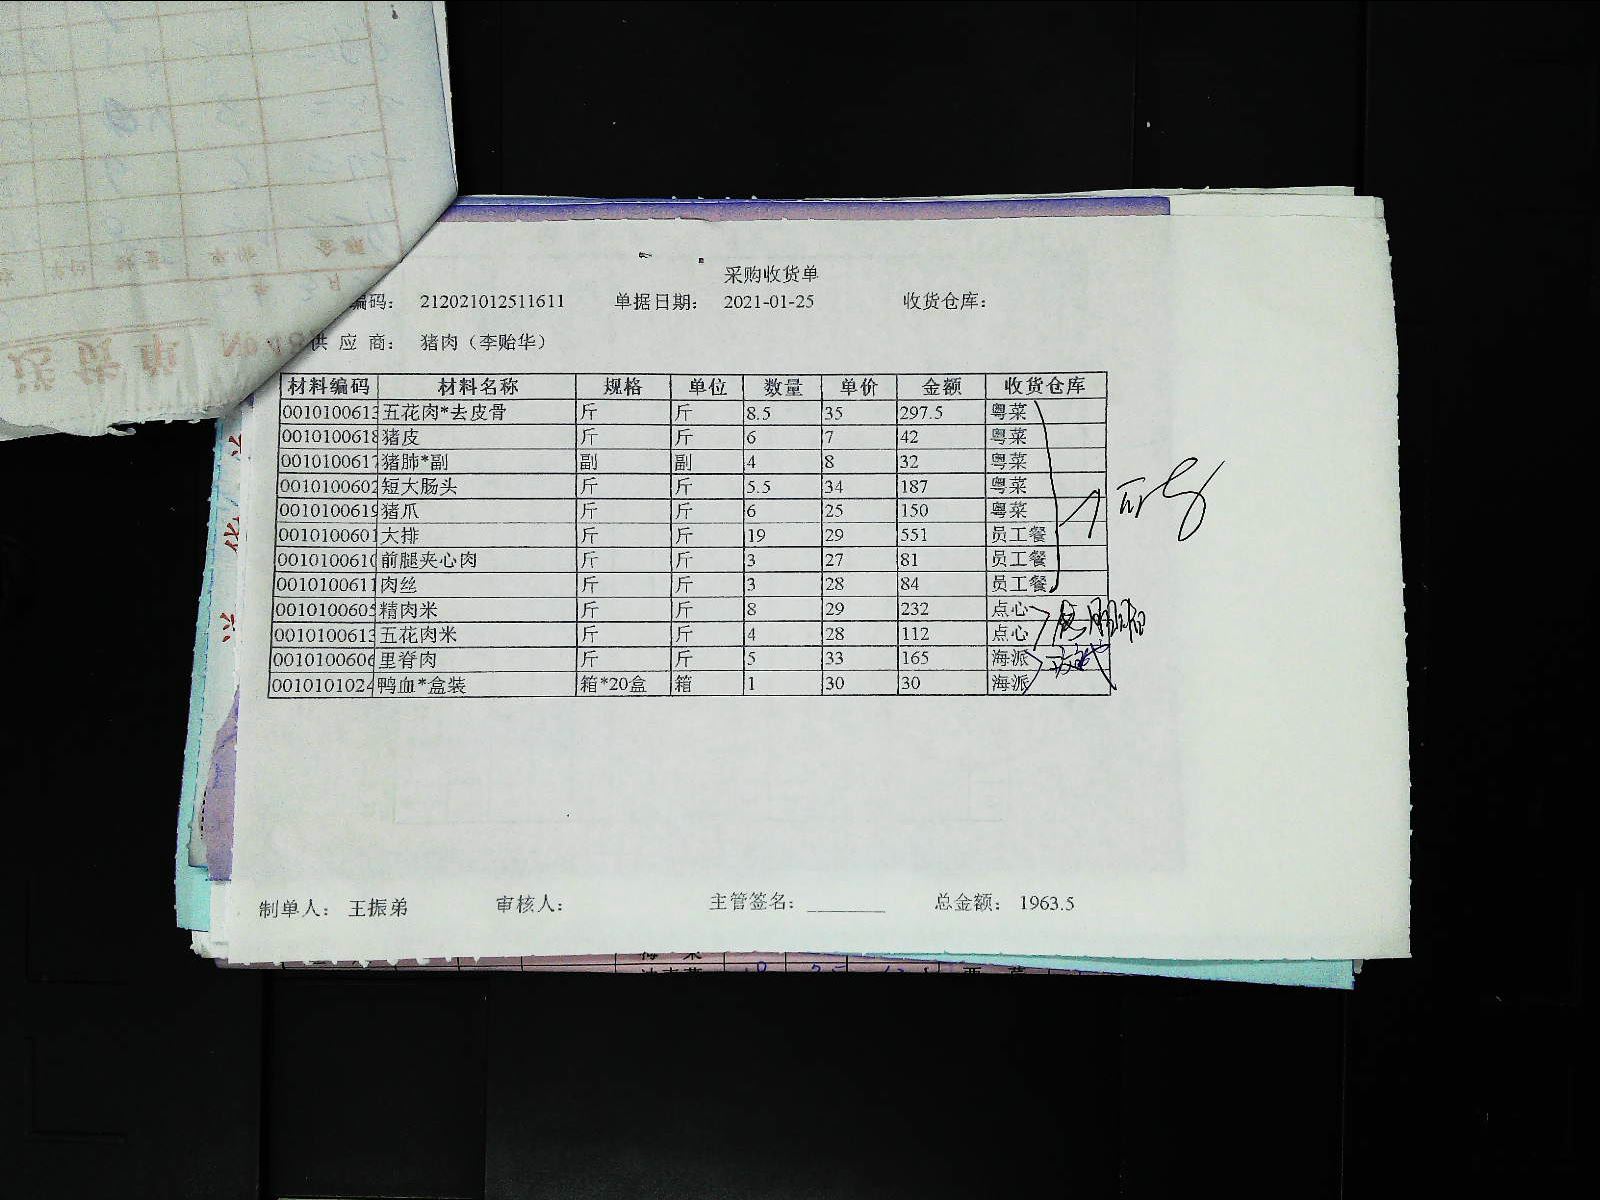 采购收货单
编码： 212021012511611 单据日期： 2021-01-25 收货仓库：
供 应 商： 猪肉（李贻华）
材料编码 材料名称 规格 单位 数量 单价 金额 收货仓库
0010100613 五花肉*去皮骨 斤 斤 8.5 35 297.5 粤菜
0010100618 猪皮 斤 斤 6 7 42 粤菜
0010100617 猪肺*副 副 副 4 8 32 粤菜
0010100602 短大肠头 斤 斤 5.5 34 187 粤菜
0010100619 猪爪 斤 斤 6 25 150 粤菜
0010100601 大排 斤 斤 19 29 551 员工餐
0010100610 前腿夹心肉 斤 斤 3 27 81 员工餐
0010100611 肉丝 斤 斤 3 28 84 员工餐
0010100605 精肉米 斤 斤 8 29 232 点心
0010100613 五花肉米 斤 斤 4 28 112 点心
0010100606 里脊肉 斤 斤 5 33 165 海派
0010101024 鸭血*盒装 箱*20盒 箱 1 30 30 海派
制单人： 王振弟 审核人： 主管签名： 总金额： 1963.5